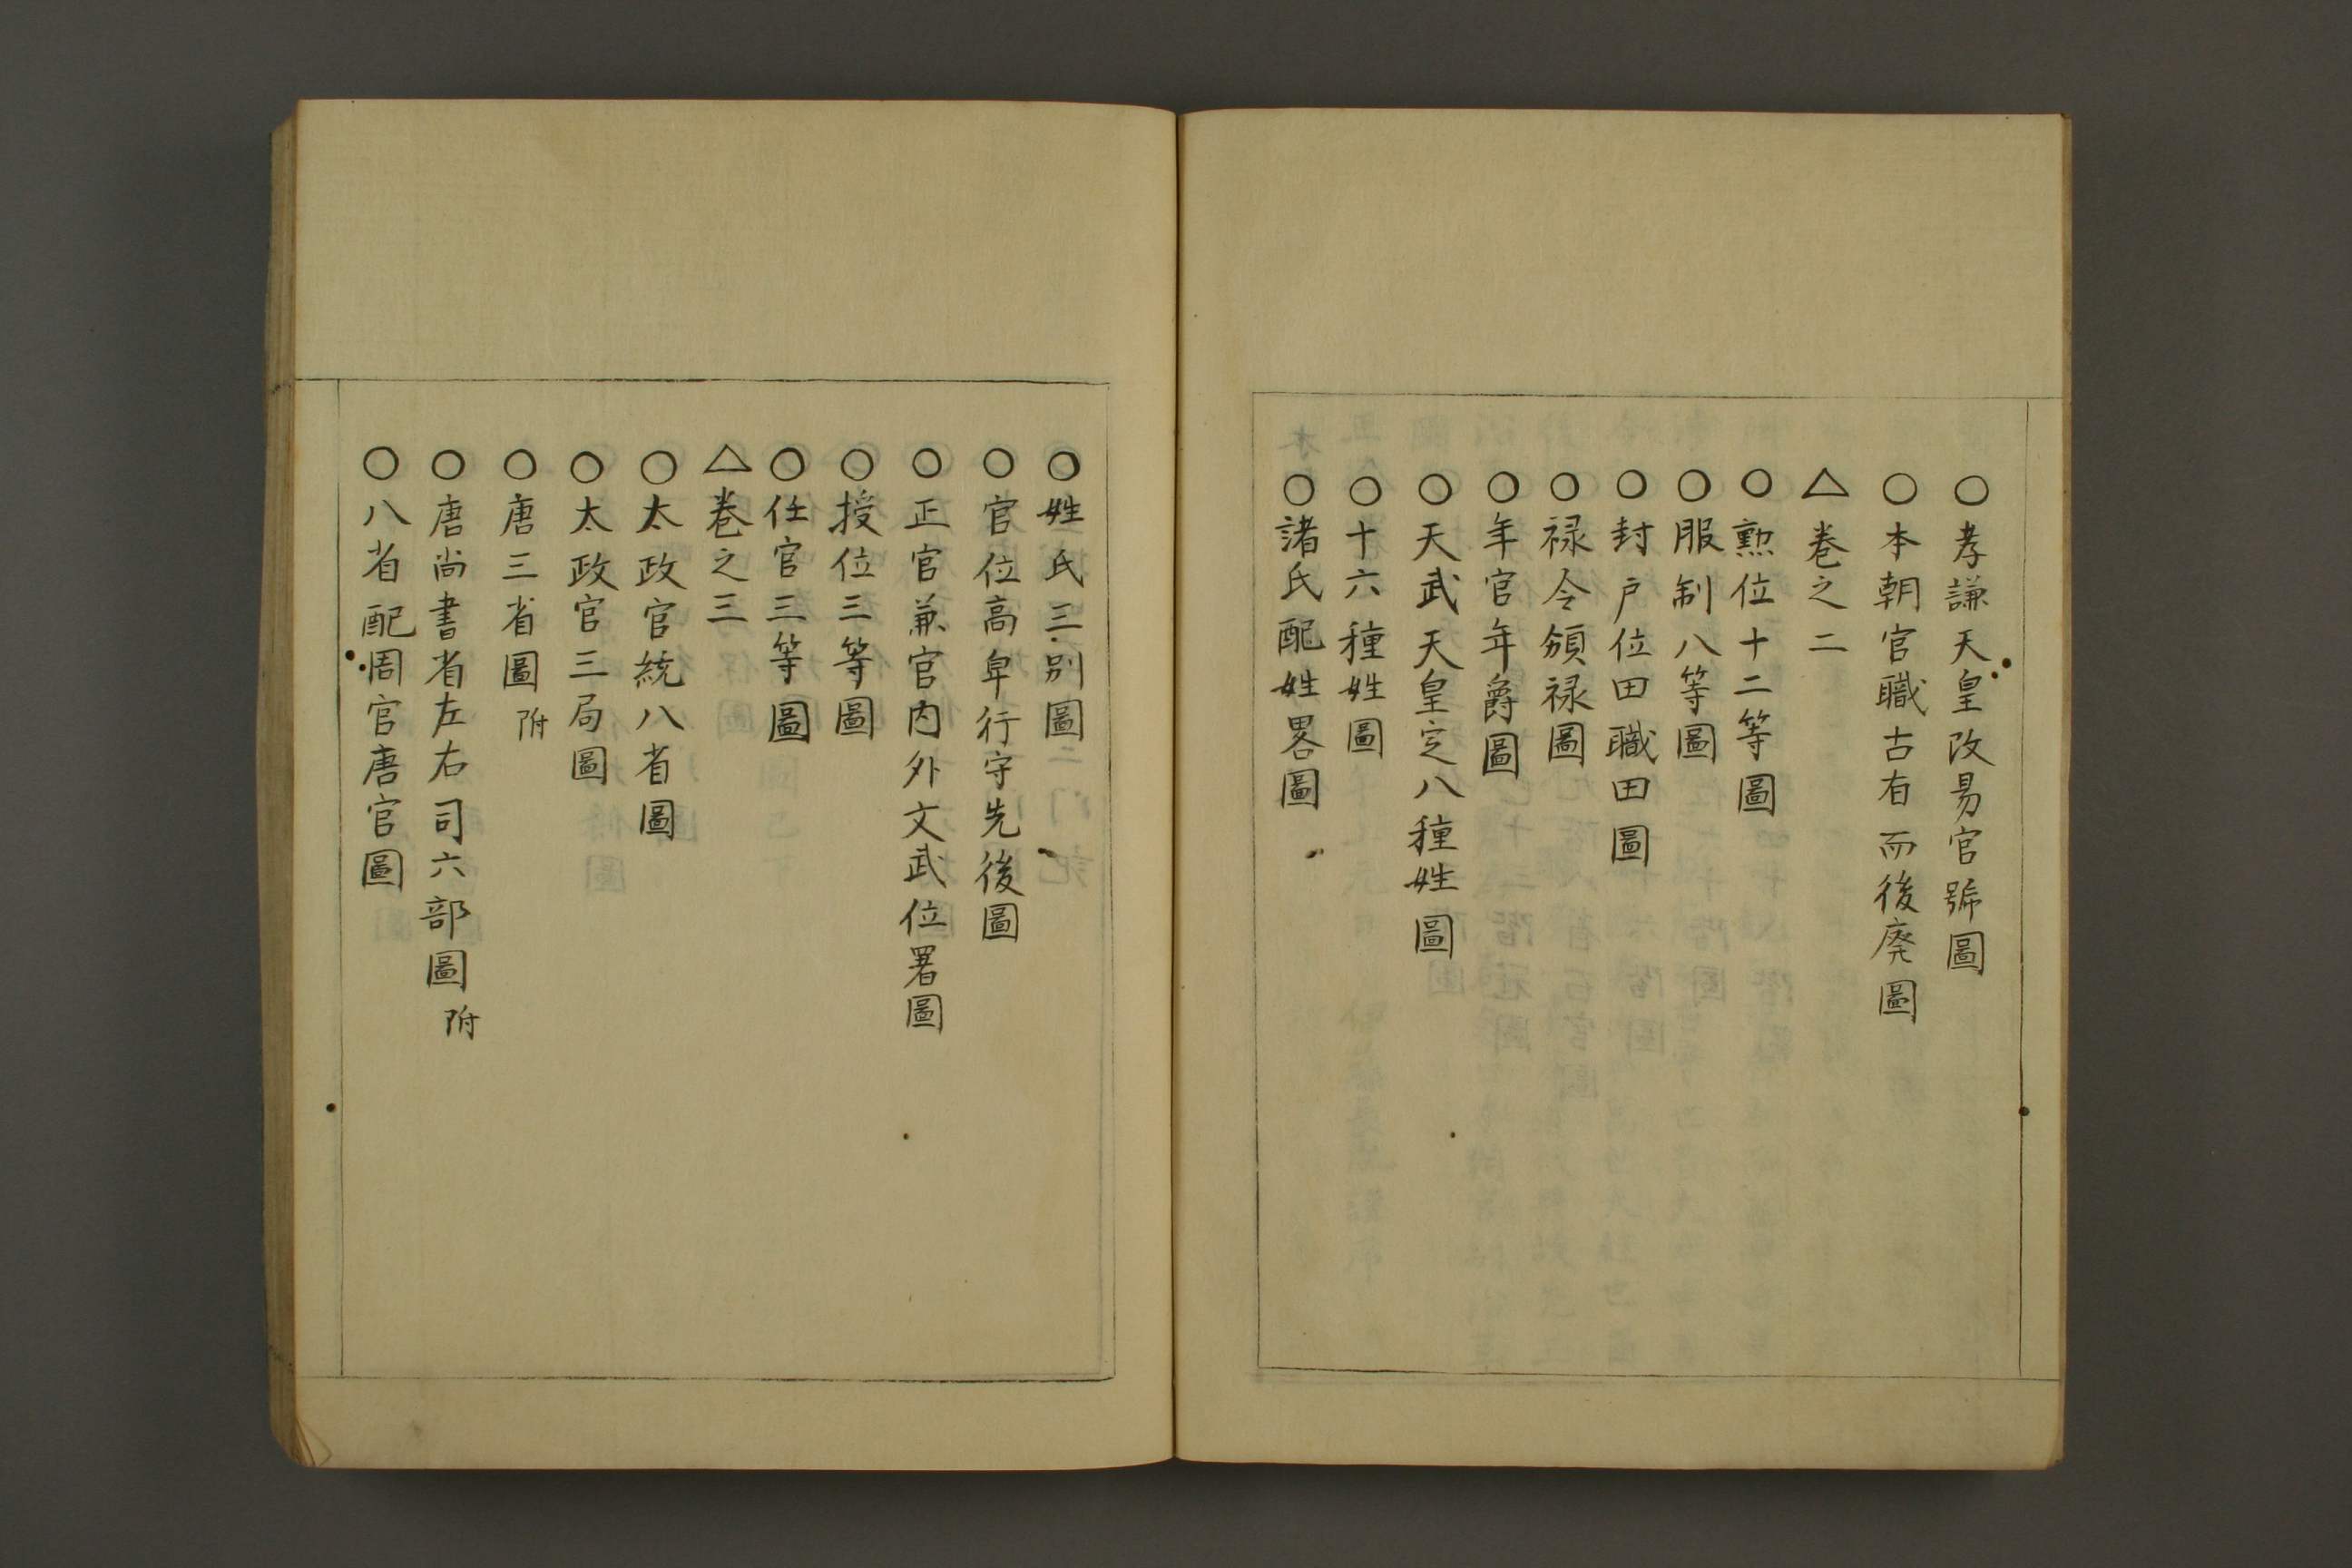 ○孝謙天皇改易官號圖
○本朝官職古有而後廃圖
△巻之二
○勲位十二等圖
○服制八等圖
○封戸位田職田圖
○禄令頒禄圖
○年官年爵圖
○天武天皇定八種姓圖
○十六種姓圖
○諸氏配姓畧圖
○姓氏三別圖
○官位高卑行守先後圖
○正官兼官内外文武位署圖
○授位三等圖
○任官三等圖
△巻之三
○太政官統八省圖
○太政官三局圖
○唐三省圖 附
○唐尚書省左右司六部圖 附
○八省配周官唐官圖